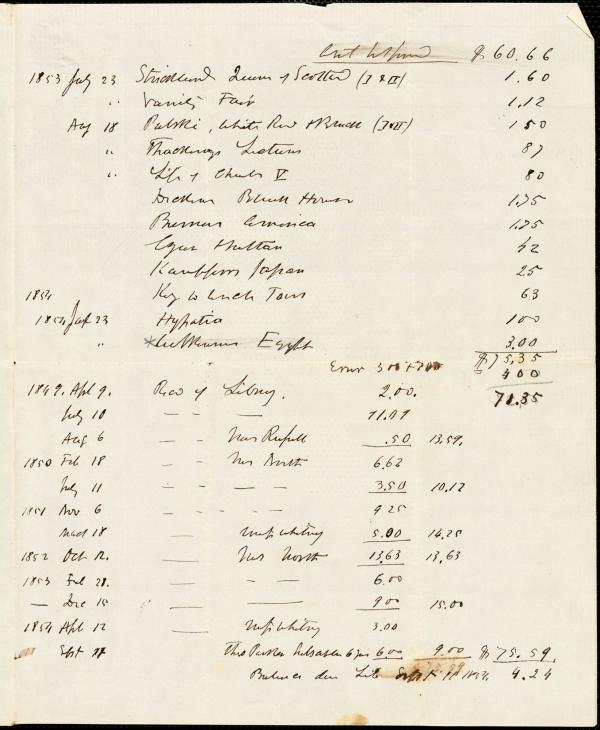 $60.66
1853 July 23 Strickland Queens of Scotland (I & II) 1.60
" Vanity Fair 1.12
Aug 18 Pulski, White Red & Black (I & II) 1 50
" Thackerays Lectures 87
" Life of Charles V 80
Dickens Bleak House 1.75
Bremers America 1.75
42
Japan 25
1854 Key to Uncle Toms 63
1854 23 Hypatia 1 00
" Egypt 3.00
Error 3 00 $75.35
4 00
71.35
1849. Apl 9. Recd of Library. 2.00.
July 10 — — — 11.09
Aug 6 — - Mrs Russell .50 13.59.
1850 Feb 18 — - Mrs North 6.62
July 11 — - — — 3.50 10.12
1851 Nov 6 — - - - - 9 25
March 18 — Miss Whitney 5.00 14.25
1852 Oct 12. — Mrs North 13.63 13.63
1853 Feb 21. — - — 6.00
— Dec 15 — — 9 00 15.00
1854 Apl 12 — Miss Whitney 3.00
Sept 6.00 9.00 $75.59
Balance due Lib Sept 1854. 4.24